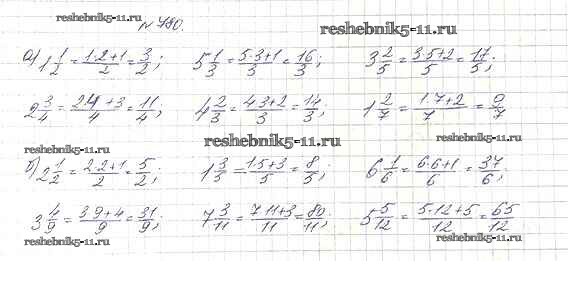 reshebnik5-11.ru № 780. reshebnik5-11.ru
а) 1 1/2 = (1·2+1)/2 = 3/2; 5 1/3 = (5·3+1)/3 = 16/3; 3 2/5 = (3·5+2)/5 = 17/5;
2 3/4 = (2·4+3)/4 = 11/4; 4 2/3 = (4·3+2)/3 = 14/3; 1 2/7 = (1·7+2)/7 = 9/7
reshebnik5-11.ru reshebnik5-11.ru reshebnik5-11.ru
б) 2 1/2 = (2·2+1)/2 = 5/2; 1 3/5 = (1·5+3)/5 = 8/5; 6 1/6 = (6·6+1)/6 = 37/6;
3 4/9 = (3·9+4)/9 = 31/9; 7 3/11 = (7·11+3)/11 = 80/11; 5 5/12 = (5·12+5)/12 = 65/12
reshebnik5-11.ru reshebnik5-11.ru